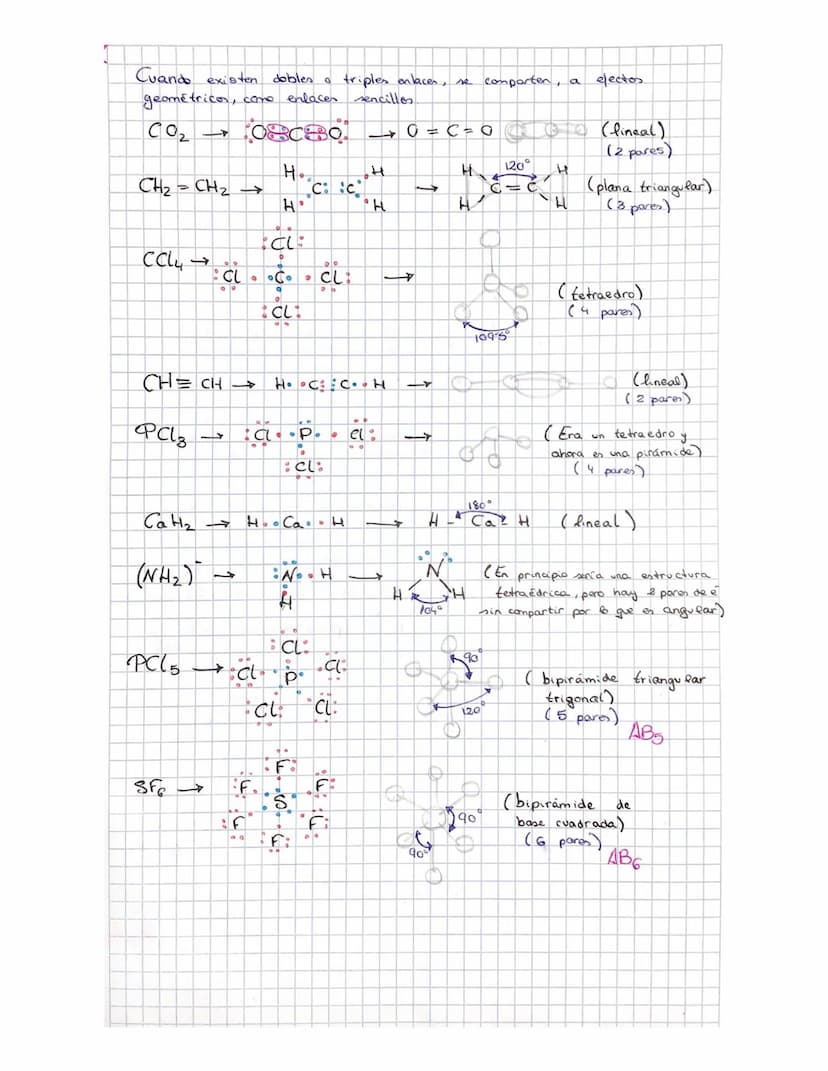 Cuando existen dobles o triples enlaces, se comparten, a efectos
geométricos, como enlaces sencillos
CO₂ → O C O → O = C = O (lineal)
(2 pares)
CH₂ = CH₂ → H H C C H H → H H C = C H H 120° (plana triangular)
(3 pares)
CCl₄ → Cl Cl C Cl Cl → 109'5° (tetraedro)
(4 pares)
CH ≡ CH → H C C H → (lineal)
(2 pares)
PCl₃ → Cl P Cl Cl → (Era un tetraedro y
ahora es una pirámide)
(4 pares)
CaH₂ → H Ca H → H - Ca - H 180° (lineal)
(NH₂)⁻ → N H H → N H H 104° (En principio sería una estructura
tetraédrica, pero hay 2 pares de é
sin compartir por lo que es angular)
PCl₅ → Cl Cl P Cl Cl Cl 90° 120° (bipirámide triangular
trigonal)
(5 pares)
AB₅
SF₆ → F F F S F F F 90° 90° (bipirámide de
base cuadrada)
(6 pares)
AB₆